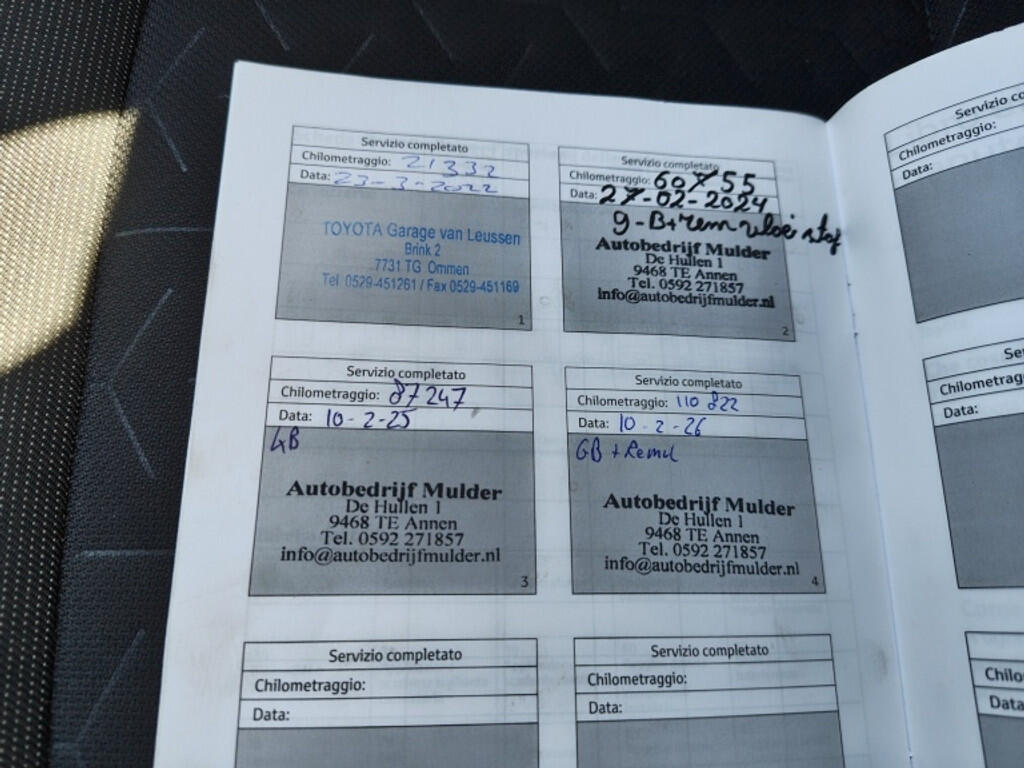 Servizio completato
Chilometraggio: 21332
Data: 23-3-2022
TOYOTA Garage van Leussen
Brink 2
7731 TG Ommen
Tel 0529-451261 / Fax 0529-451169
1
Servizio completato
Chilometraggio: 60755
Data: 27-02-2024
g-B+rem vloei stof
Autobedrijf Mulder
De Hullen 1
9468 TE Annen
Tel. 0592 271857
info@autobedrijfmulder.nl
2
Servizio completato
Chilometraggio: 87247
Data: 10-2-25
GB
Autobedrijf Mulder
De Hullen 1
9468 TE Annen
Tel. 0592 271857
info@autobedrijfmulder.nl
3
Servizio completato
Chilometraggio: 110822
Data: 10-2-26
GB + Remvl
Autobedrijf Mulder
De Hullen 1
9468 TE Annen
Tel. 0592 271857
info@autobedrijfmulder.nl
4
Servizio completato
Chilometraggio:
Data:
Servizio completato
Chilometraggio:
Data:
Servizio co
Chilometraggio:
Data:
Se
Chilometrag
Data:
Chilo
Data